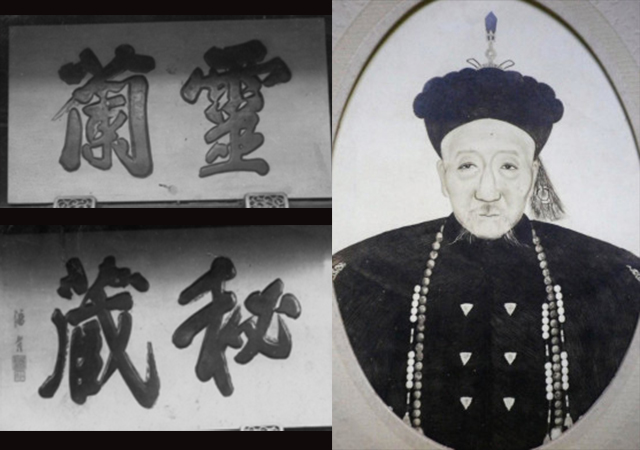 靈蘭
秘藏